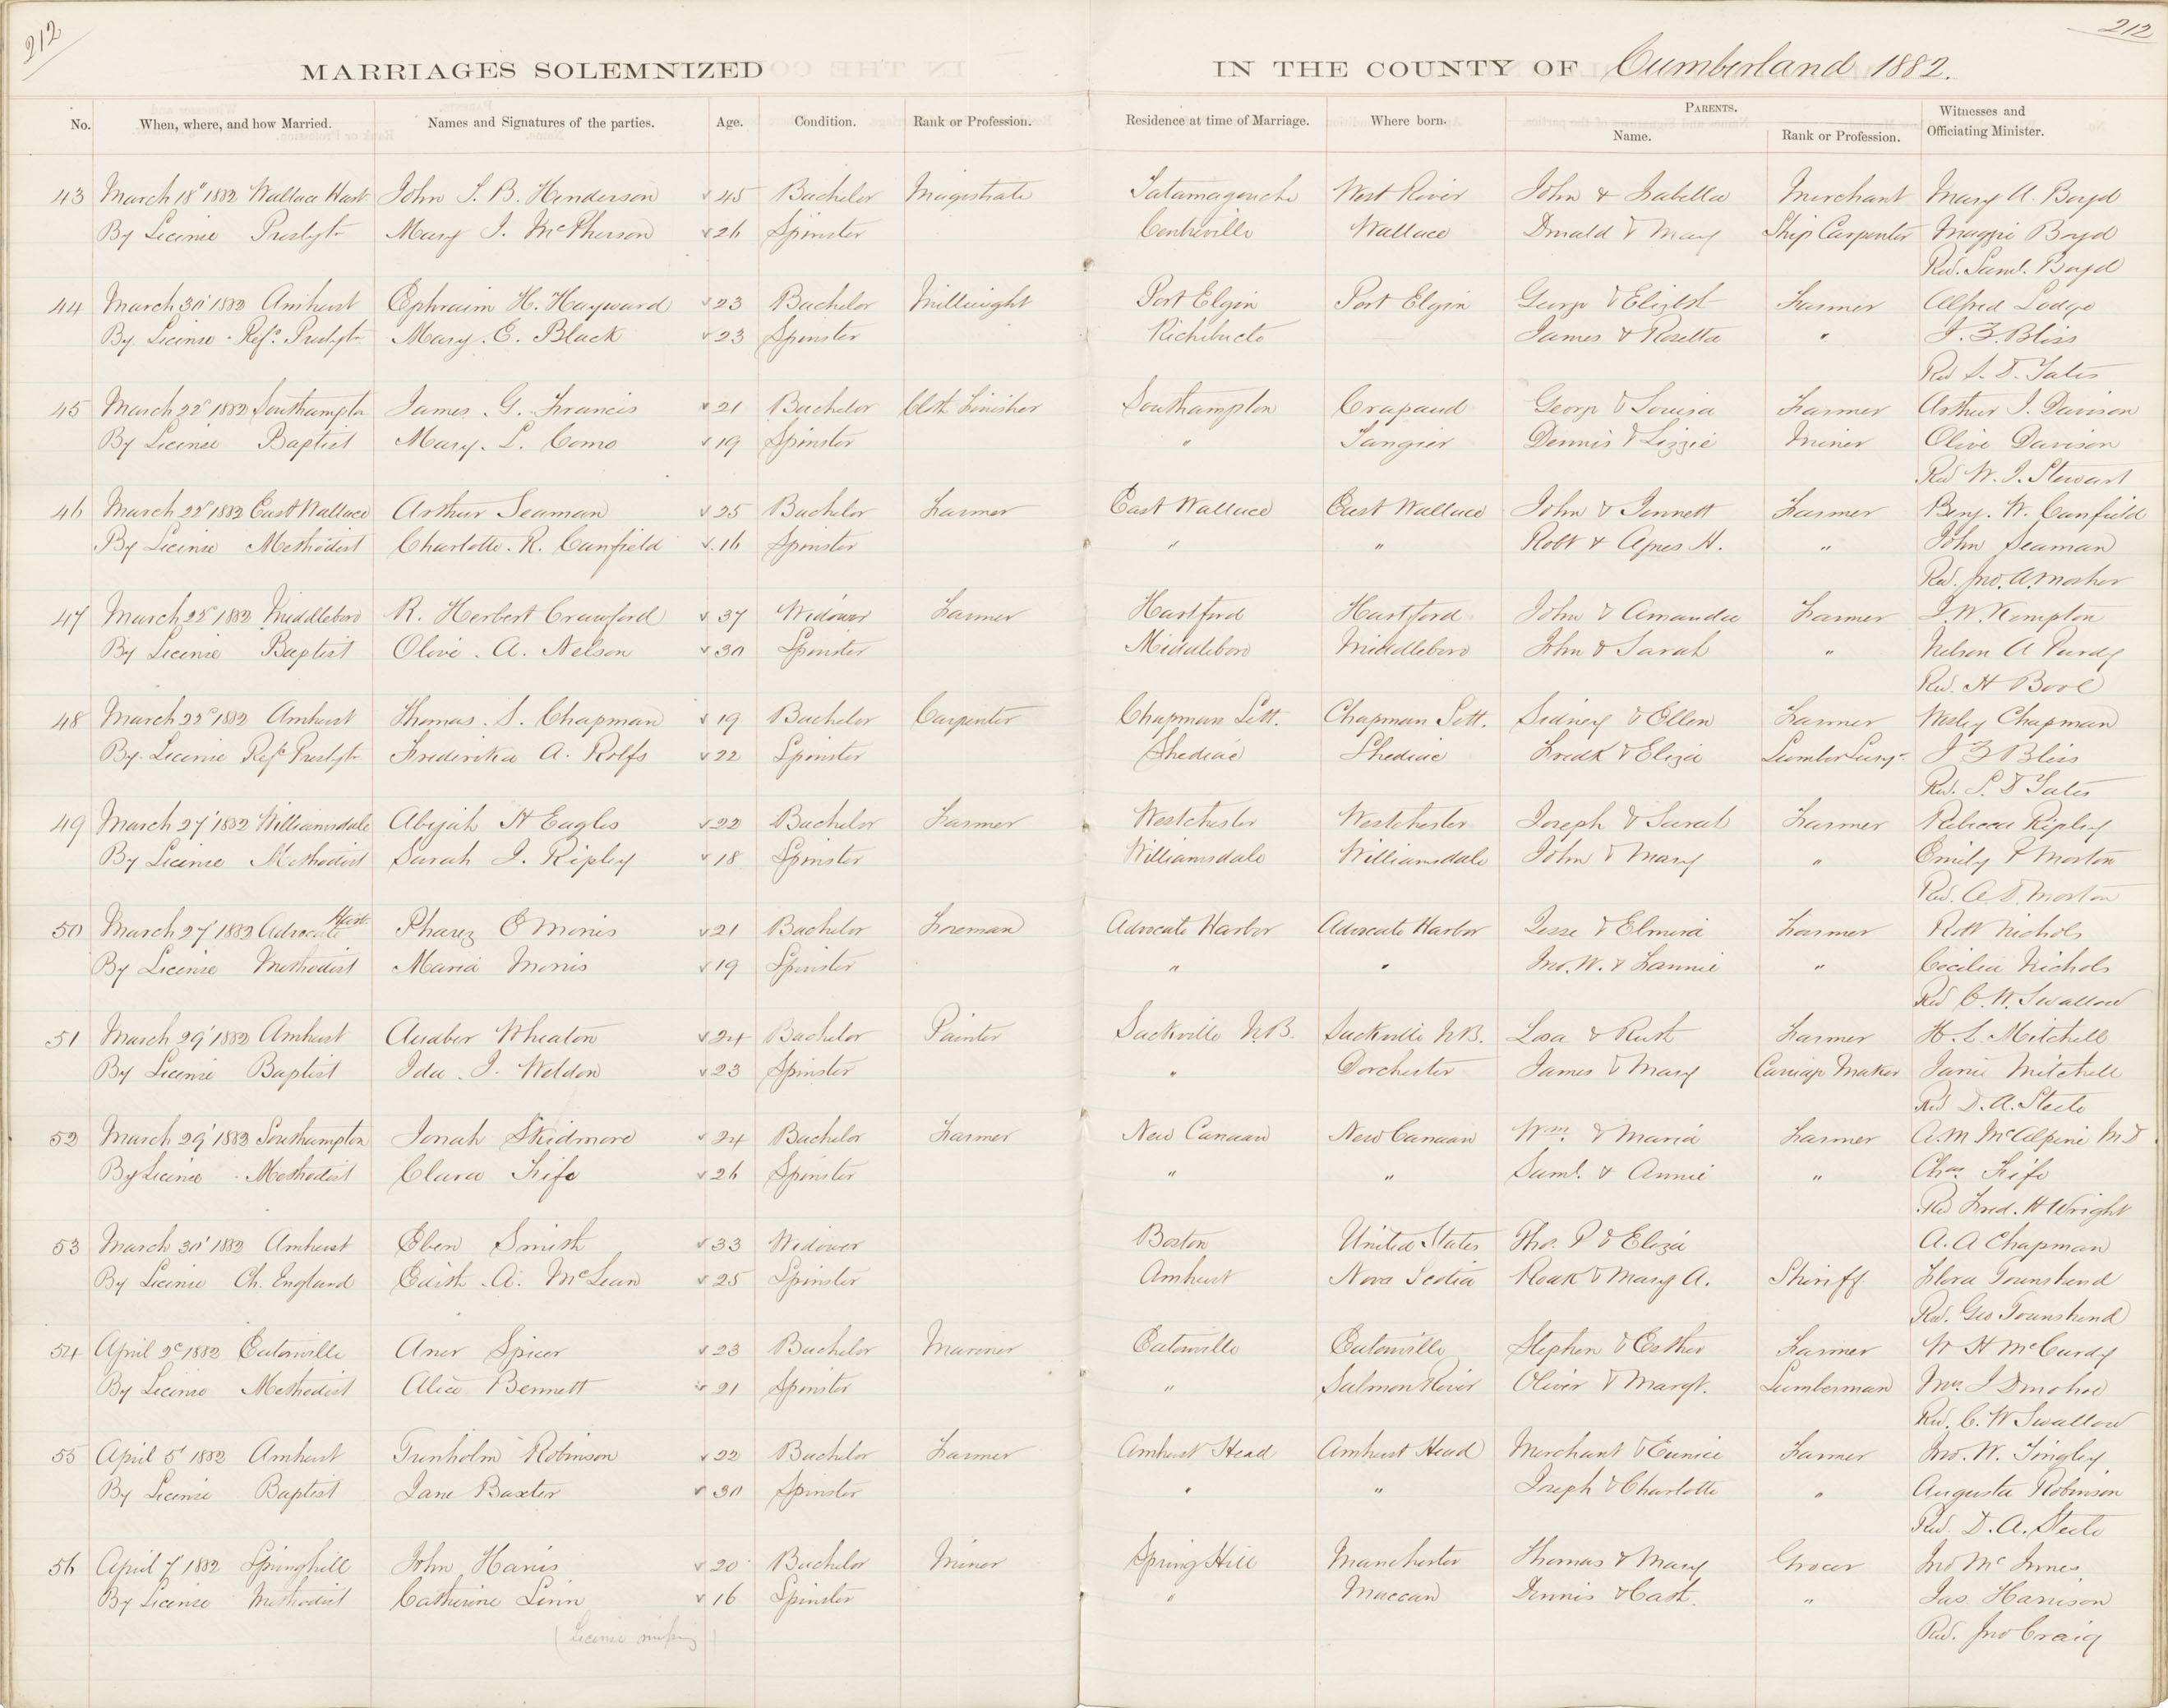 212
212
MARRIAGES SOLEMNIZED IN THE COUNTY OF Cumberland 1882.
No. When, where, and how Married. Names and Signatures of the parties. Age. Condition. Rank or Profession. Residence at time of Marriage. Where born. PARENTS. Name. Rank or Profession. Witnesses and Officiating Minister.
43 March 18" 1882 Wallace John S. B. Henderson 45 Bachelor Magistrate Tatamagouche West River John & Isabella Merchant Mary A. Boyd
By License Presbytn Mary J. McPherson 26 Spinster Centreville Wallace Donald & Mary Ship Carpenter Maggie Boyd
Rev. Saml. Boyd
44 March 1882 Amherst Ephraim H. Hayward 23 Bachelor Millwright Port Elgin Port Elgin George & Elizbth Farmer Alfred Lodge
By License Refd. Presbytn Mary. E. Black 23 Spinster Richibucto James & Rosetta " J. Z. Bliss
Rev S. D. Yates
45 March 22d 1882 Southampton James. G. Francis 21 Bachelor Cloth Finisher Southampton Crapaud George & Louisa Farmer Arthur J. Davison
By License Baptist Mary. L. Como 19 Spinster " Tangier Dennis & Lizzie Miner Olive Davison
Rev W. J. Stewart
46 March 22d 1882 East Wallace Arthur Seaman 25 Bachelor Farmer East Wallace East Wallace John & Jennett Farmer Benj. W. Canfield
By License Methodist Charlotte. R. Canfield 16 Spinster " " Robt & Agnes H. " John Seaman
Rev. Jno. A. Mosher
47 March 1882 Middleboro R. Herbert Crawford 37 Widower Farmer Hartford Hartford John & Amanda Farmer J. W. Kempton
By License Baptist Olive. A. Nelson 30 Spinster Middleboro Middleboro John & Sarah " Nelson A Purdy
Rev. H Bool
48 March 1882 Amherst Thomas. S. Chapman 19 Bachelor Carpenter Chapman Sett. Chapman Sett. Sidney & Ellen Farmer Wesley Chapman
By License Refd Presbytn Frederika A. Rolfs 22 Spinster Shediac Shediac Fredk & Eliza Lumber J Z Bliss
Rev. S. D Yates
49 March 27' 1882 Williamsdale Abijah H Eagles 22 Bachelor Farmer Westchester Westchester Joseph & Sarah Farmer Rebecca Ripley
By License Methodist Sarah J. Ripley 18 Spinster Williamsdale Williamsdale John & Mary " Emily P Morton
Rev. A. D. Morton
50 March 27' 1882 Advocate Harb. Pharez E Morris 21 Bachelor Foreman Advocate Harbor Advocate Harbor Jesse & Elmira Farmer Robt Nichols
By License Methodist Maria Morris 19 Spinster " " Jno. W. & Fannie " Cecilia Nichols
Rev C. W. Swallow
51 March 29' 1882 Amherst Wheaton 24 Bachelor Painter Sackville N.B. Sackville N.B. & Ruth Farmer H. L. Mitchell
By License Baptist Ida. J. Weldon 23 Spinster " Dorchester James & Mary Carriage Maker Janie Mitchell
Rev D. A. Steele
52 March 29' 1882 Southampton Jonah Skidmore 24 Bachelor Farmer New Canaan New Canaan Wm. & Maria Farmer A. M McAlpine M.D.
By License Methodist Clara Fife 26 Spinster " " Saml. & Annie " Chas Fife
Rev Fred. H Wright
53 March 30' 1882 Amherst Eben Smith 33 Widower Boston United States Thos. P & Eliza A. A Chapman
By License Ch. England Edith. A. McLean 25 Spinster Amherst Nova Scotia & Mary A. Sheriff Flora Townshend
Rev. Geo Townshend
54 April 2d 1882 Eatonville Aner Spicer 23 Bachelor Mariner Eatonville Eatonville Stephen & Esther Farmer W H McCurdy
By License Methodist Alice Bennett 21 Spinster " Salmon River Oliver & Margt. Lumberman Mrs. J Donohoe
Rev. C. W Swallow
55 April 5' 1882 Amherst Trenholm Robinson 22 Bachelor Farmer Amherst Head Amherst Head Merchant & Eunice Farmer Jno. W. Tingley
By License Baptist Jane Baxter 30 Spinster " " Joseph & Charlotte " Augusta Robinson
Rev. D. A. Steele
56 April 7 1882 Springhill John Harris 20 Bachelor Miner Spring Hill Manchester Thomas & Mary Grocer Jno McInnes
By License Methodist Catherine Linn 16 Spinster " Maccan Dennis & Cath. " Jas Harrison
(License missing) Rev. Jno Craig